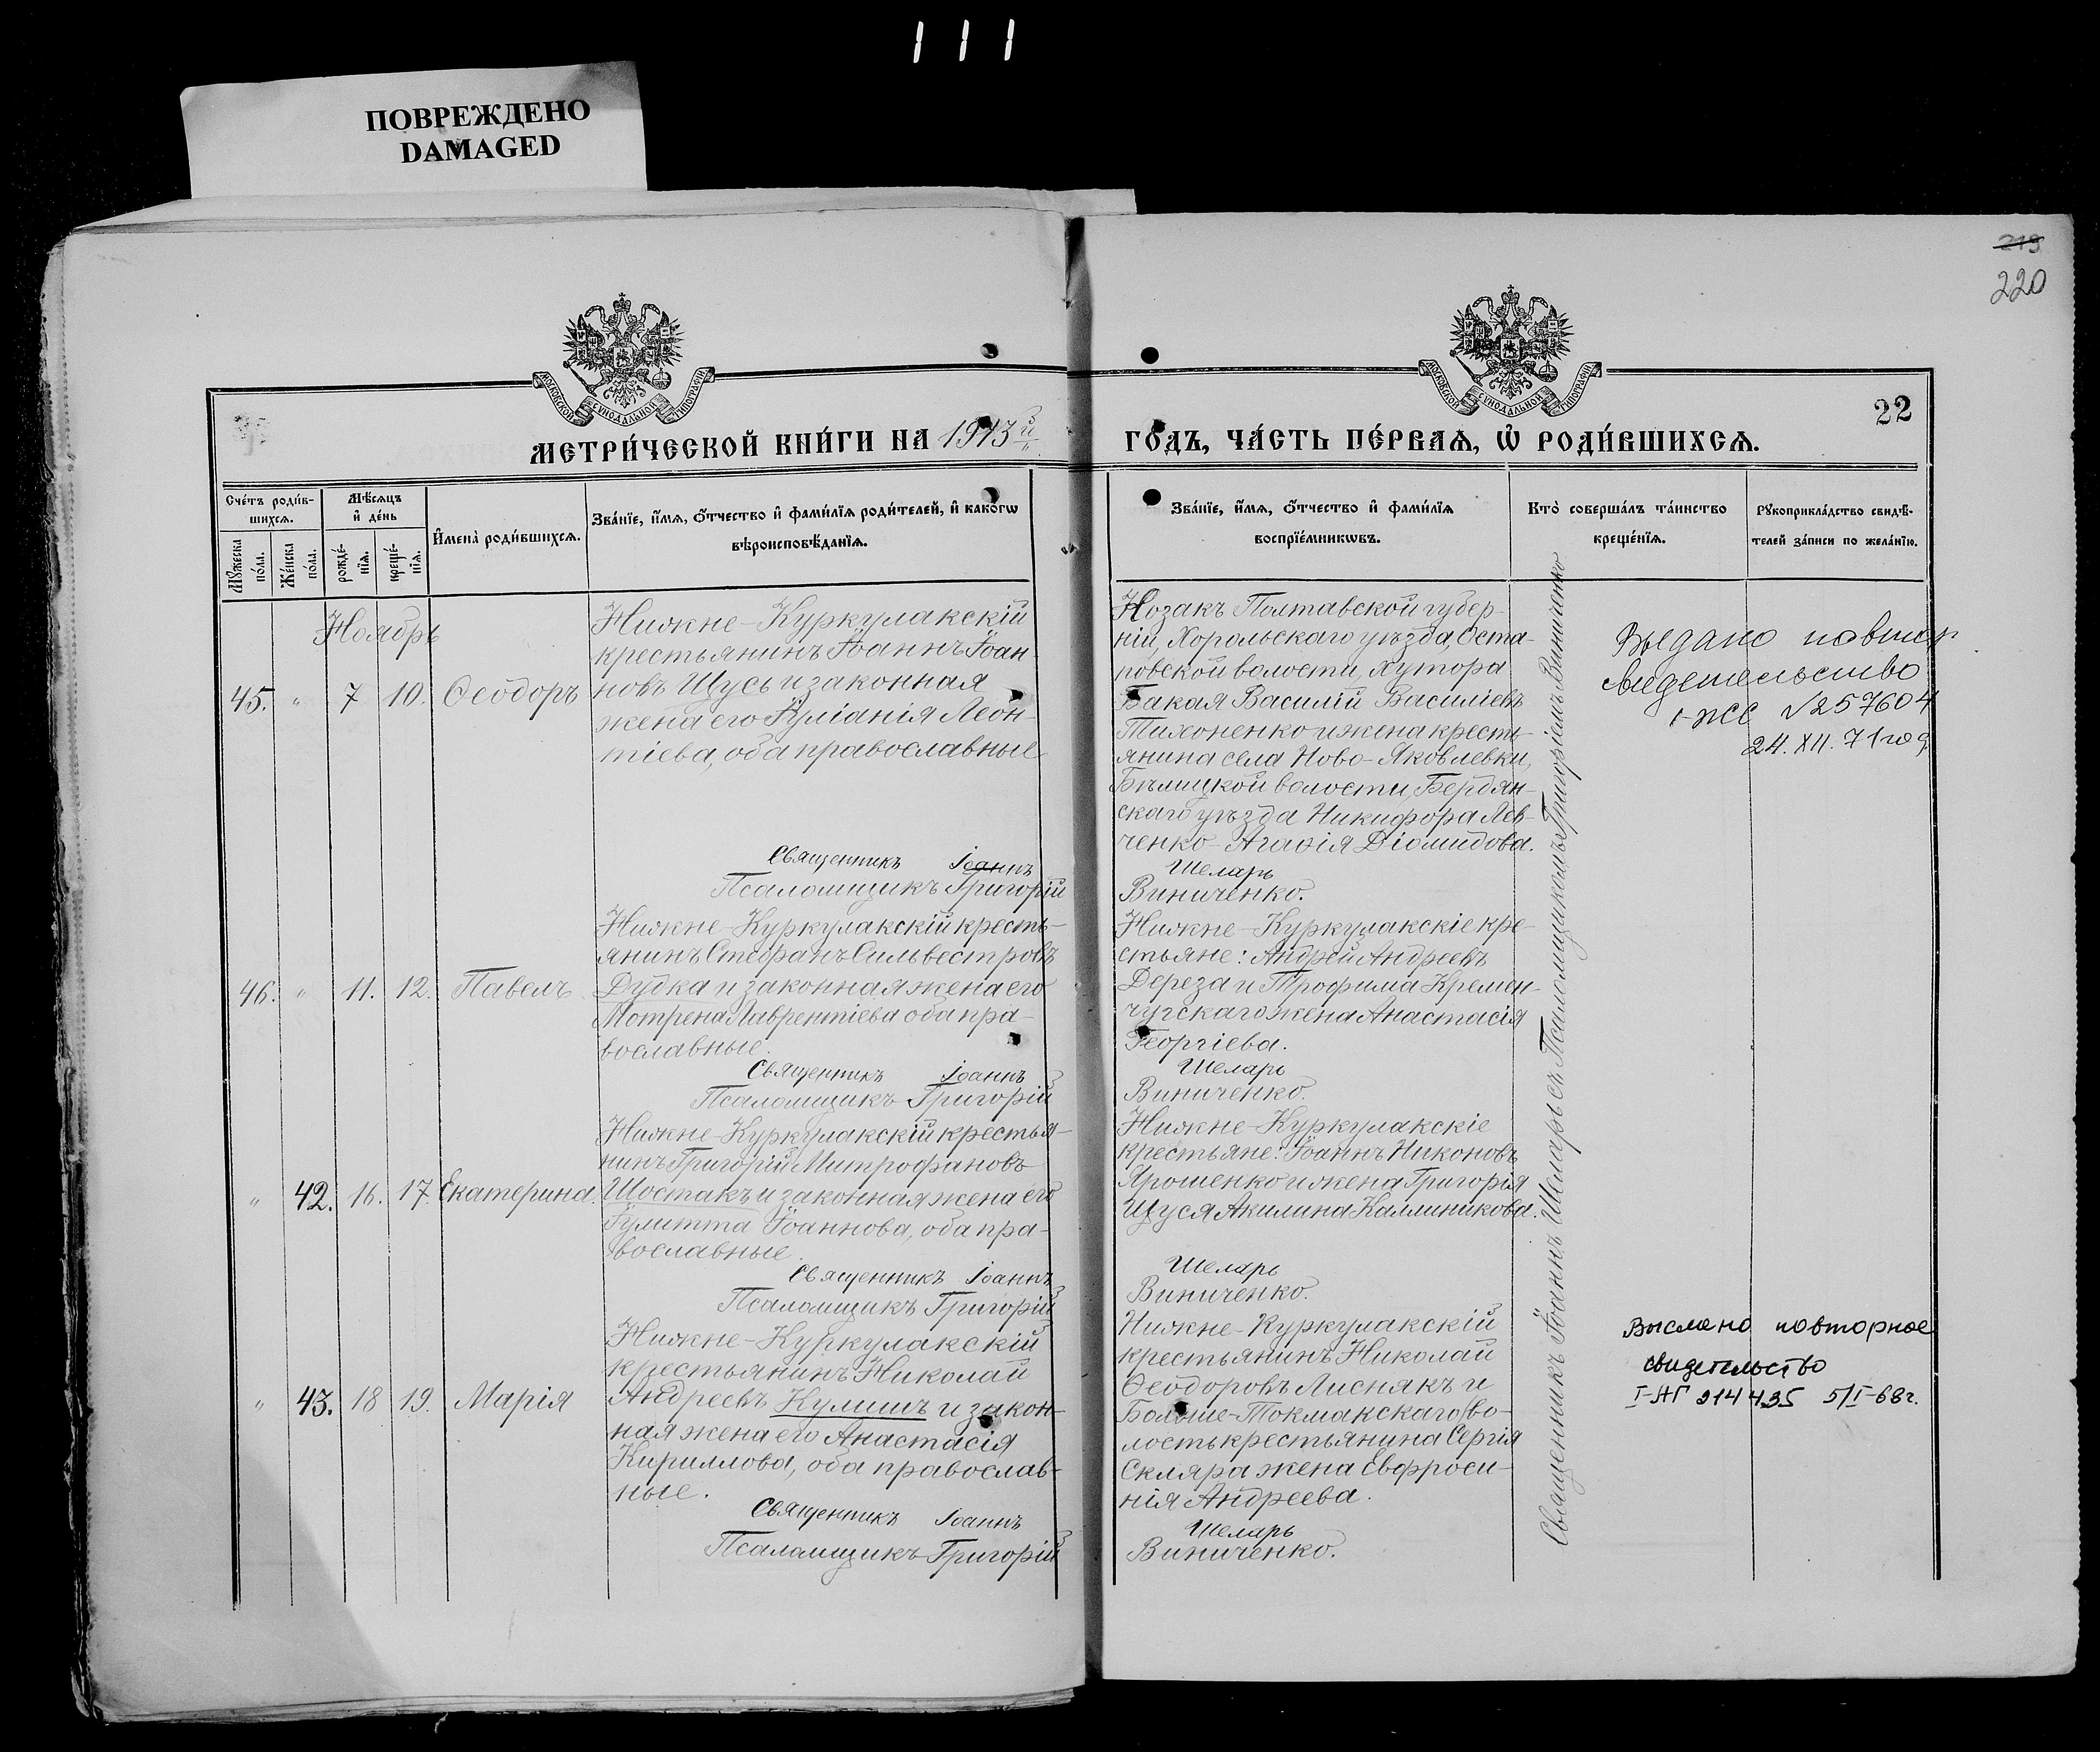 111
ПОВРЕЖДЕНО
DAMAGED
219
220
МОСКОВСКОЙ СѴНОДАЛЬНОЙ ТИПОГРАФІИ
МОСКОВСКОЙ СѴНОДАЛЬНОЙ ТИПОГРАФІИ
22
МЕТРИ́ЧЕСКОЙ КНИ́ГИ НА 1913й
ГО́ДЪ, ЧА́СТЬ ПЕ́РВАѦ, Ѡ҆ РОДИ́ВШИХСѦ.
Сче́тъ роди́в-
шихсѧ.
Мꙋ́жеска по́ла.
Же́нска по́ла.
Мѣ́сѧцъ
и҆ де́нь
рожде́-
нїѧ.
креще́-
нїѧ.
И҆мена̀ роди́вшихсѧ.
Зва́нїе, и҆́мѧ, ѻ҆́тчество и҆ фами́лїѧ роди́телей, и҆ како́гѡ
вѣроисповѣ́данїѧ.
Зва́нїе, и҆́мѧ, ѻ҆́тчество и҆ фами́лїѧ
воспрїе́мникѡвъ.
Кто̀ соверша́лъ та́инство
креще́нїѧ.
Рꙋкоприкла́дство свидѣ́-
телей за́писи по жела́нїю.
Ноябрь
45. " 7 10. Ѳеодоръ
Нижне-Куркулакскій
крестьянинъ Іоаннъ Іоан-
новъ Щусь и законная
жена его Іуліанія Леон-
тіева, оба православные
Священникъ Іоаннъ
Псаломщикъ Григорій
Козакъ Полтавской губер-
ніи, Хорольскаго уѣзда, Оста-
повской волости, хутора
Бакая Василій Василіевъ
Тихоненко и жена кресть-
янина села Ново-Яковлевки,
Бѣлицкой волости, Бердян-
скаго уѣзда Никифора Лев-
ченко- Агаѳія Діомидова.
Шеларь
Виниченко.
Выдано повтор
Свидетельство
I-ЖС №257604
24. XII. 71год
46. " 11. 12. Павелъ
Нижне-Куркулакскій кресть-
янинъ Стефанъ Сильвестровъ
Дудка и законная жена его
Мотрена Лаврентіева оба пра-
вославные.
Священникъ Іоаннъ
Псаломщикъ Григорій
Нижне-Куркулакскіе кре-
стьяне: Андрей Андреевъ
Дереза и Трофима Кремен-
чугскаго жена Анастасія
Георгіева.
Шеларь
Виниченко.
" 42. 16. 17. Екатерина.
Нижне-Куркулакскій крестья-
нинъ Григорій Митрофановъ
Шостакъ и законная жена его
Іулитта Іоаннова, оба пра-
вославные.
Священникъ Іоаннъ
Псаломщикъ Григорій
Нижне-Куркулакскіе
крестьяне: Іоаннъ Никоновъ
Ярошенко и жена Григорія
Щуся Акилина Каллиникова.
Шеларь
Виниченко.
" 43. 18 19. Марія
Нижне-Куркулакскій
крестьянинъ Николай
Андреевъ Кулишъ и закон-
ная жена его Анастасія
Кириллова, оба православ-
ные.
Священникъ Іоаннъ
Псаломщикъ Григорій
Нижне-Куркулакскій
крестьянинъ Николай
Ѳеодоровъ Лиснякъ и
Больше-Токмакскаго во-
лость крестьянина Сергія
Скляра жена Евфроси-
нія Андреева.
Шеларь
Виниченко.
Выслано повторное
свидетельство
I-АГ 214435 5/I-68г.
Священникъ Іоаннъ Шеларь съ Псаломщикомъ Григоріемъ Виниченко